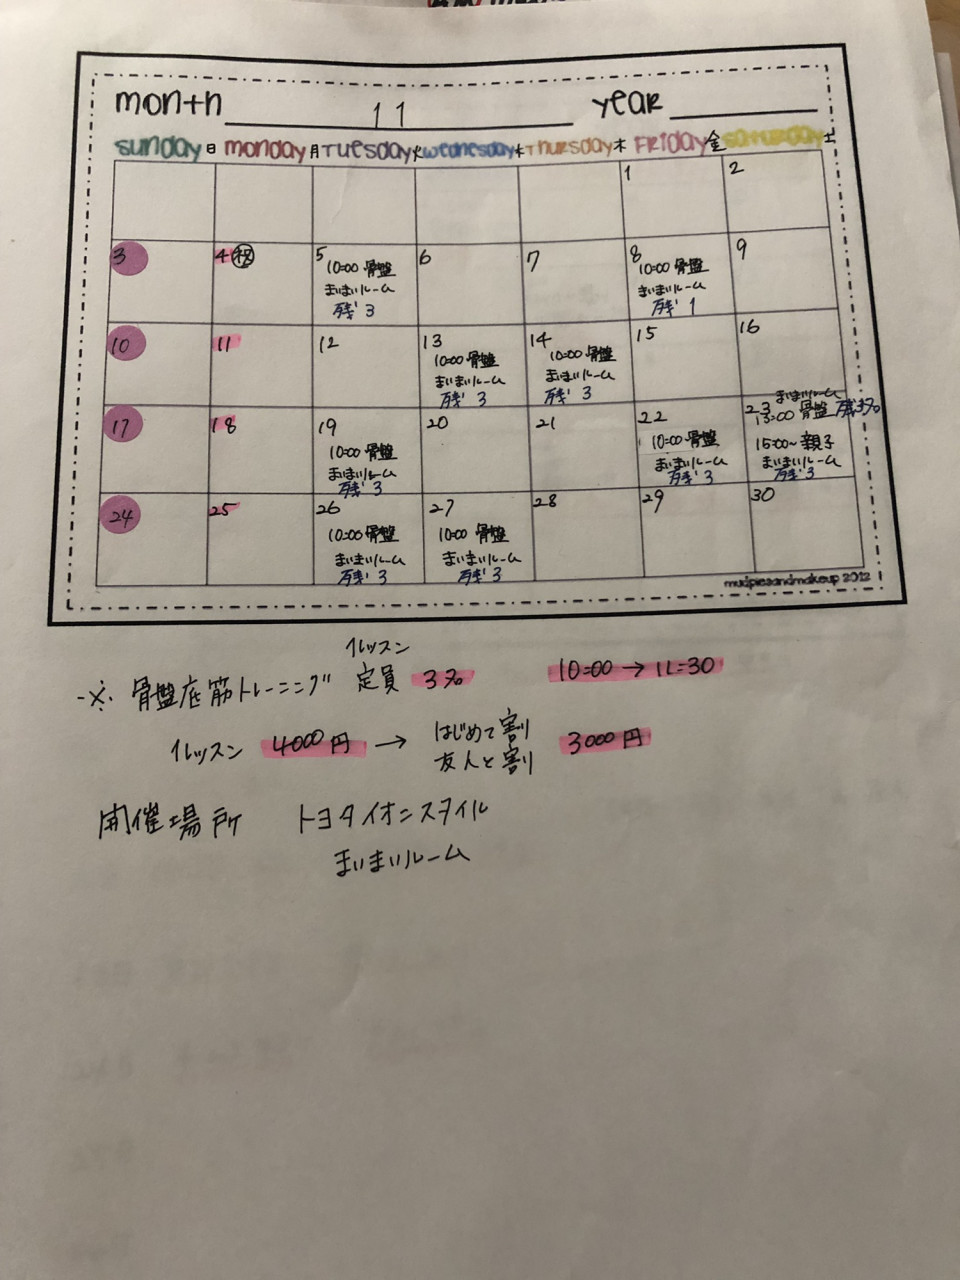 month 11 year
sunday 日 monday 月 Tuesday 火 wednesday 水 Thursday 木 FRIDAY 金 saturday 土
1 2
3 4 祝 5 6 7 8 9
10:00 骨盤 10:00 骨盤
まいまいルーム まいまいルーム
残 3 残 1
10 11 12 13 14 15 16
10:00 骨盤 10:00 骨盤
まいまいルーム まいまいルーム
残 3 残 3
17 18 19 20 21 22 23 まいまいルーム
10:00 骨盤 10:00 骨盤 骨盤 残3名
まいまいルーム まいまいルーム 15:00~ 親子
残 3 残 3 まいまいルーム
残 3
24 25 26 27 28 29 30
10:00 骨盤 10:00 骨盤
まいまいルーム まいまいルーム
残 3 残 3
mudpiesandmakeup 2012
1レッスン
※ 骨盤底筋トレーニング 定員 3名 10:00 → 11:30
1レッスン 4000円 → はじめて割 3000円
友人と割
開催場所 トヨタイオンスタイル
まいまいルーム